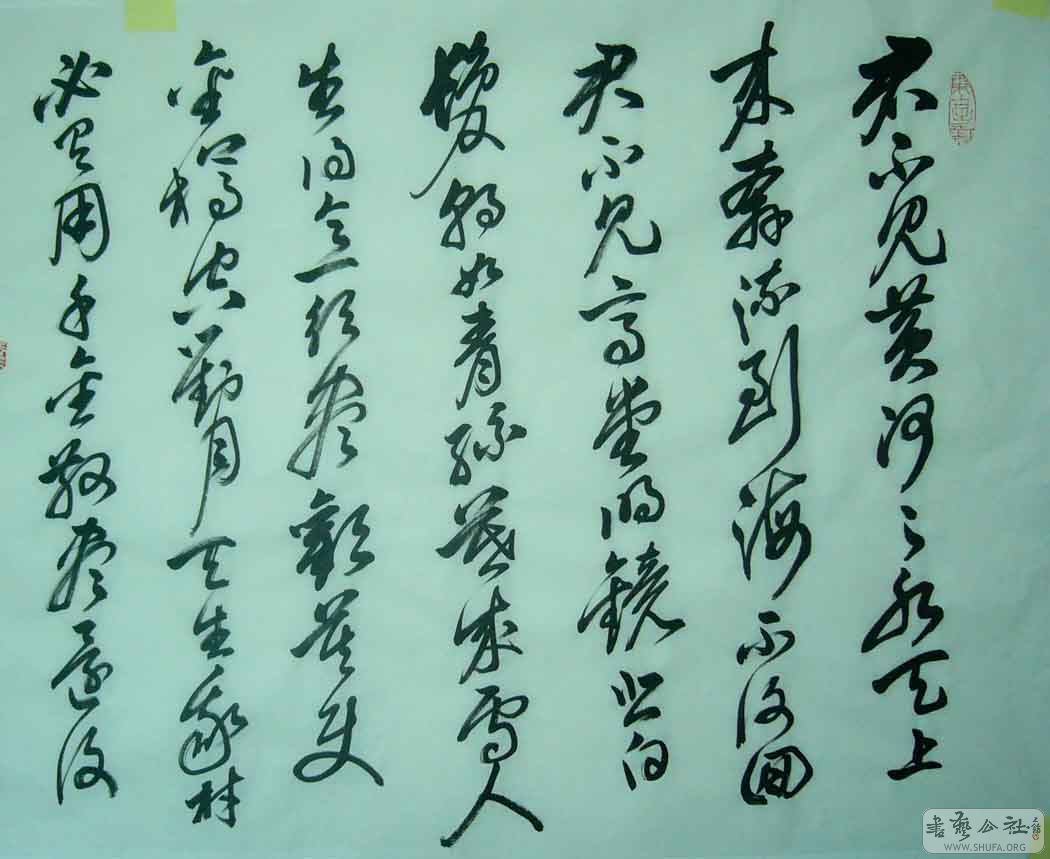 君不見黄河之水天上
来奔流到海不復回
君不見高堂明鏡悲白
髮朝如青絲暮成雪人
生得意須盡歡莫使
金樽空對月天生我材
必有用千金散盡還復
書藝公社
WWW.SHUFA.ORG